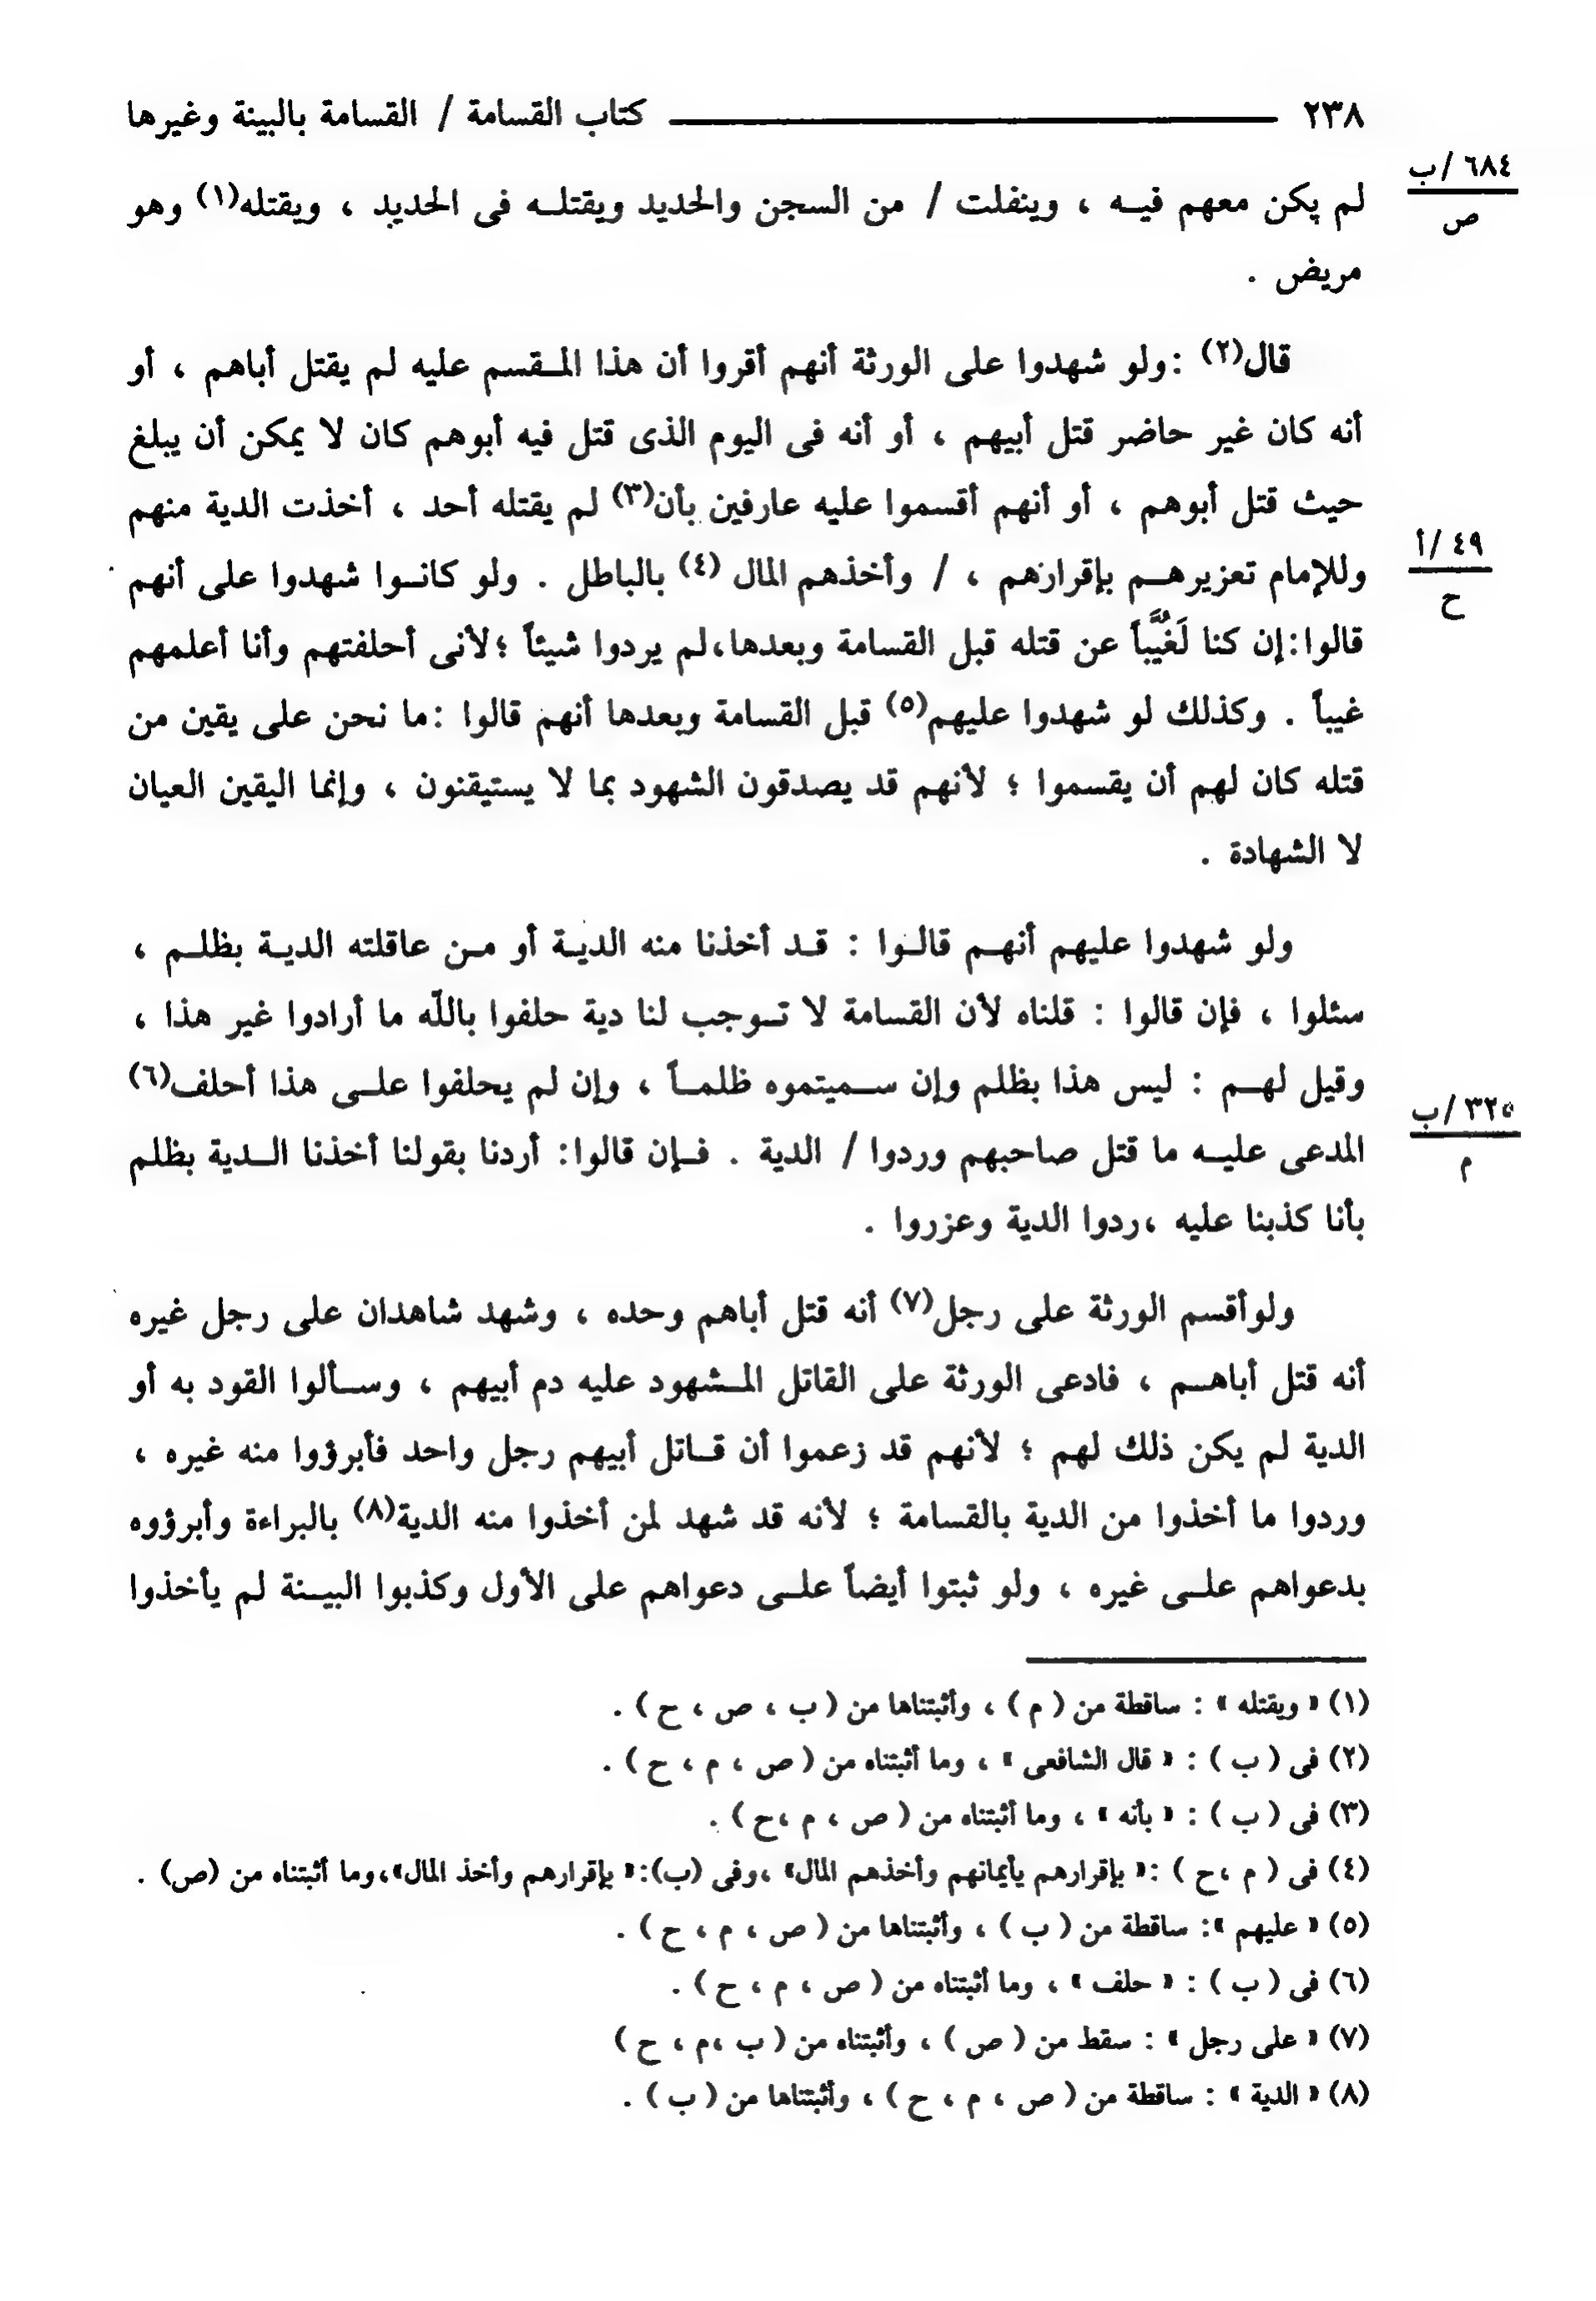 ٢٣٨ كتاب القسامة / القسامة بالبينة وغيرها
٦٨٤ /ب
ص
لم يكن معهم فيـه ، وينفلت / من السجن والحديد ويقتلـه فى الحديد ، ويقتله(١) وهو
مريض .
قال(٢) :ولو شهدوا على الورثة أنهم أقروا أن هذا المـقسم عليه لم يقتل أباهم ، أو
أنه كان غير حاضر قتل أبيهم ، أو أنه فى اليوم الذى قتل فيه أبوهم كان لا يمكن أن يبلغ
حيث قتل أبوهم ، أو أنهم أقسموا عليه عارفين بأن(٣) لم يقتله أحد ، أخذت الدية منهم
٤٩ /أ
ح
وللإمام تعزيرهـم بإقرارهم ، / وأخذهم المال (٤) بالباطل . ولو كانـوا شهدوا على أنهم
قالوا:إن كنا لَغُيَّباً عن قتله قبل القسامة وبعدها،لم يردوا شيئاً ؛لأنى أحلفتهم وأنا أعلمهم
غيباً . وكذلك لو شهدوا عليهم(٥) قبل القسامة وبعدها أنهم قالوا :ما نحن على يقين من
قتله كان لهم أن يقسموا ؛ لأنهم قد يصدقون الشهود بما لا يستيقنون ، وإنما اليقين العيان
لا الشهادة .
ولو شهدوا عليهم أنهـم قالـوا : قـد أخذنا منه الديـة أو مـن عاقلته الديـة بظلـم ،
سئلوا ، فإن قالوا : قلناه لأن القسامة لا تـوجب لنا دية حلفوا بالله ما أرادوا غير هذا ،
وقيل لهـم : ليس هذا بظلم وإن سـميتموه ظلمـاً ، وإن لم يحلفوا علـى هذا أحلف(٦)
٣٢٥ /ب
م
المدعى عليـه ما قتل صاحبهم وردوا / الدية . فـإن قالوا: أردنا بقولنا أخذنا الـدية بظلم
بأنا كذبنا عليه ،ردوا الدية وعزروا .
ولوأقسم الورثة على رجل(٧) أنه قتل أباهم وحده ، وشهد شاهدان على رجل غيره
أنه قتل أباهـم ، فادعى الورثة على القاتل المـشهود عليه دم أبيهم ، وسـألوا القود به أو
الدية لم يكن ذلك لهم ؛ لأنهم قد زعموا أن قـاتل أبيهم رجل واحد فأبرؤوا منه غيره ،
وردوا ما أخذوا من الدية بالقسامة ؛ لأنه قد شهد لمن أخذوا منه الدية(٨) بالبراءة وأبرؤوه
بدعواهم علـى غيره ، ولو ثبتوا أيضاً علـى دعواهم على الأول وكذبوا البيـنة لم يأخذوا
(١) « ويقتله » : ساقطة من ( م ) ، وأثبتناها من ( ب ، ص ، ح ) .
(٢) فى ( ب ) : « قال الشافعى » ، وما أثبتناه من ( ص ، م ، ح ) .
(٣) فى ( ب ) : « بأنه » ، وما أثبتناه من ( ص ، م ،ح ) .
(٤) فى ( م ،ح ) :« بإقرارهم بأيمانهم وأخذهم المال» ،وفى (ب):« بإقرارهم وأخذ المال»،وما أثبتناه من (ص) .
(٥) « عليهم »: ساقطة من ( ب ) ، وأثبتناها من ( ص ، م ، ح ) .
(٦) فى ( ب ) : « حلف » ، وما أثبتناه من ( ص ، م ، ح ) .
(٧) « على رجل » : سقط من ( ص ) ، وأثبتناه من ( ب ،م ، ح )
(٨) « الدية » : ساقطة من ( ص ، م ، ح ) ، وأثبتناها من ( ب ) .